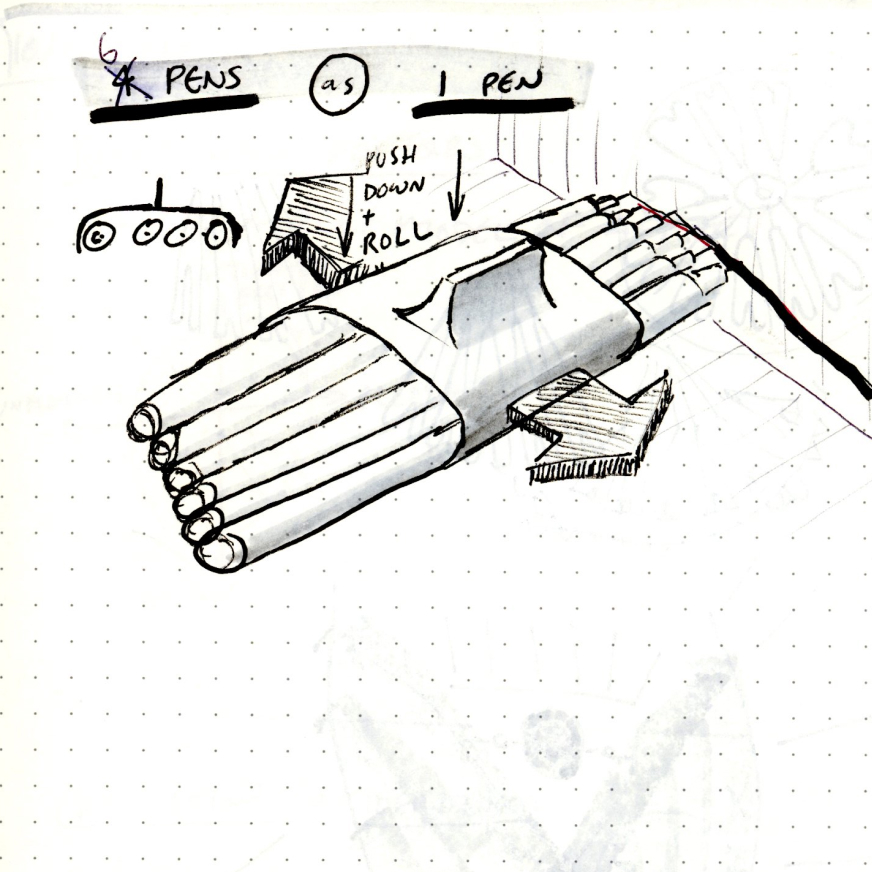 6 PENS as 1 PEN
PUSH
DOWN
+
ROLL